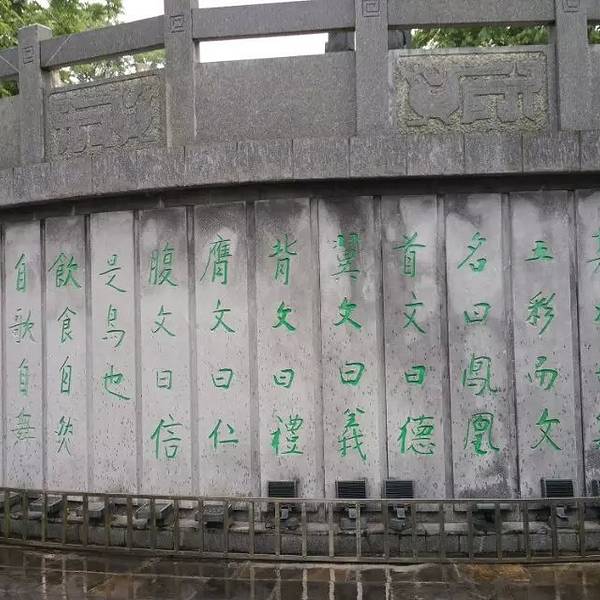 五彩而文
名曰鳳凰
首文曰德
翼文曰義
背文曰禮
膺文曰仁
腹文曰信
是鳥也
飲食自然
自歌自舞